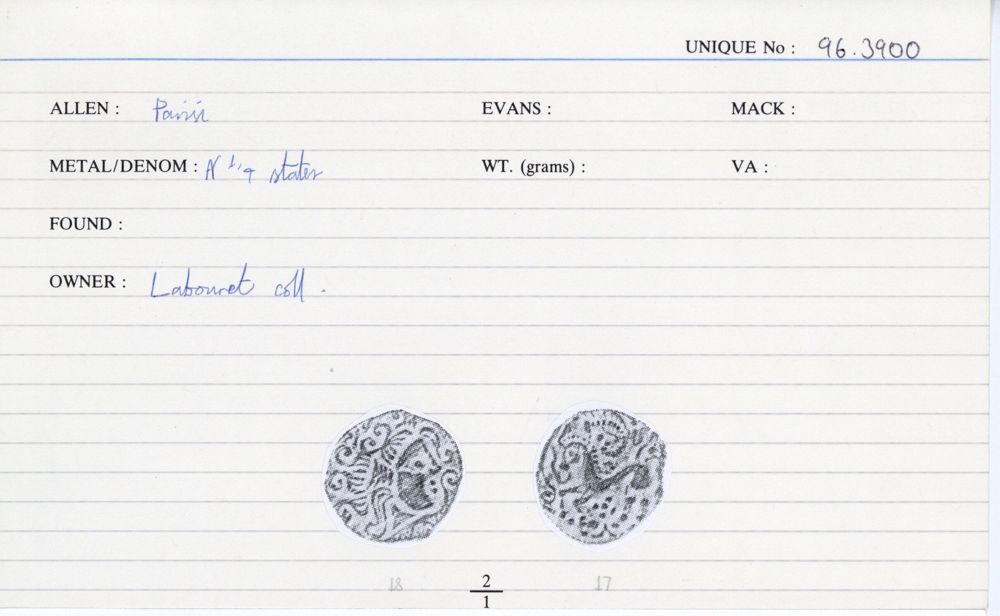 UNIQUE No : 96.3900
ALLEN : Parisii EVANS : MACK :
METAL/DENOM : N 1/4 stater WT. (grams) : VA :
FOUND :
OWNER : Labouret coll.
18 2/1 17